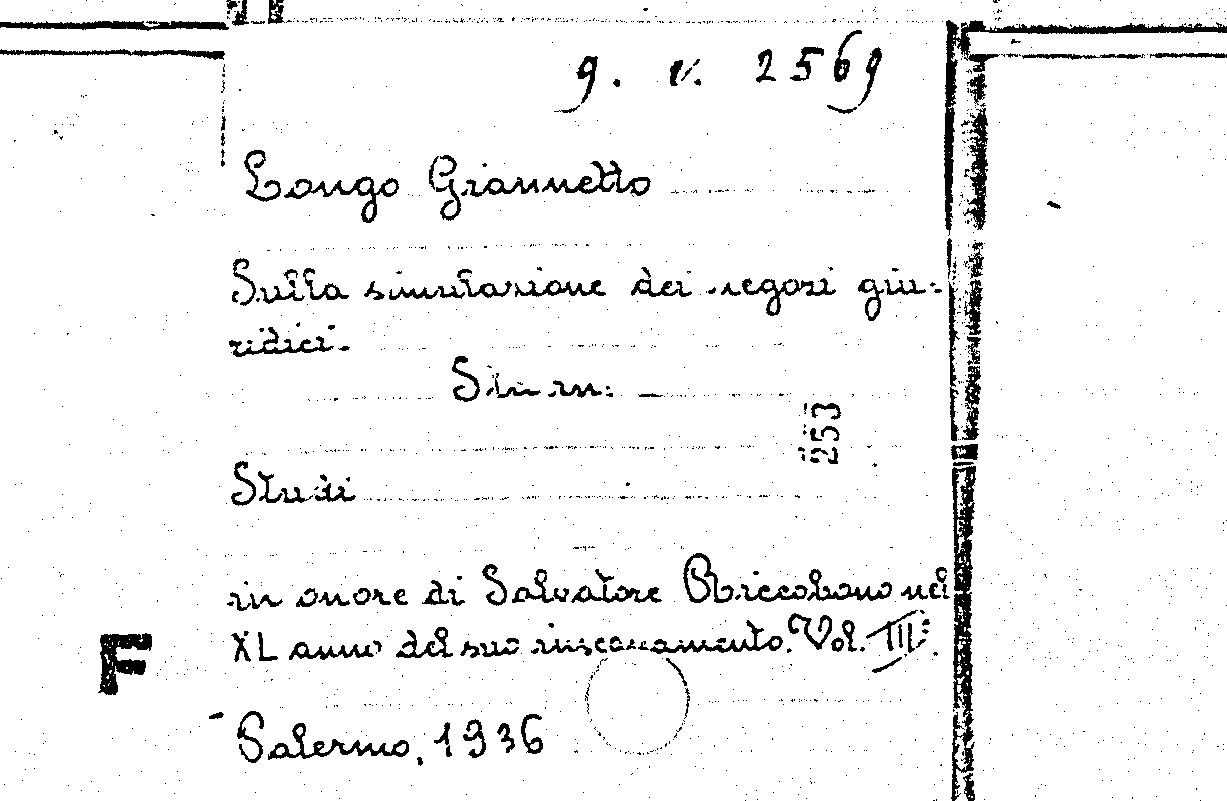 g. v. 2569
Longo Giannetto
Sulla simulazione dei negozi giu-
ridici.
Sta in:
253
Studi
in onore di Salvatore Riccobono nel
XL anno del suo insegnamento. Vol. III.
F
Palermo, 1936